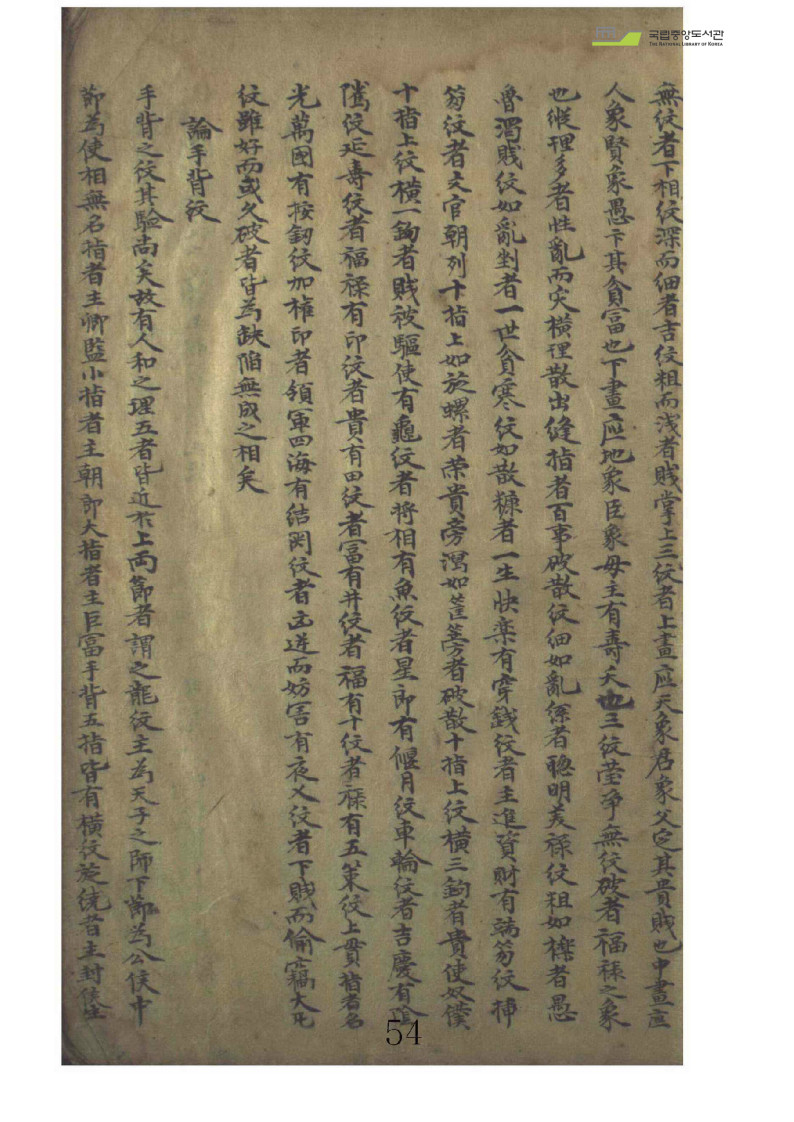 국립중앙도서관
THE NATIONAL LIBRARY OF KOREA
無紋者下相紋深而細者吉紋粗而浅者賎掌上三紋者上畫应天象君象父定其貴賎也中畫应
人象賢象愚卞其貧富也下畫应地象臣象母主有壽夭也三紋莹净無紋破者福禄之象
也縱理多者性亂而灾橫理散出縫指者百事破散紋細如亂絲者聰明美禄紋粗如櫟者愚
魯濁賎紋如亂剉者一世貧寒紋如散糠者一生快楽有穿錢紋者主進資財有端笏紋揷
笏紋者文官朝列十指上如旋螺者荣貴旁瀉如筐篣者破散十指上紋橫三鈎者貴使奴僕
十指上紋橫一鈎者賎被驅使有龜紋者将相有魚紋者星郎有偃月紋車輪紋者吉慶有陰
隲紋延壽紋者福禄有印紋者貴有田紋者冨有井紋者福有十紋者禄有五策紋上貫指者名
光萬國有按釰紋加權印者領軍四海有結関紋者凶逆而妨害有夜乂紋者下賎而偷竊大凡
紋雖好而或久破者皆為缺陷無成之相矣
論手背紋
手背之紋其驗尚矣故有人和之理五者皆近於上両節者謂之龍紋主為天子之師下節為公侯中
節為使相無名指者主卿監小指者主朝郎大指者主巨冨手背五指皆有橫紋旋繞者主封侯
54